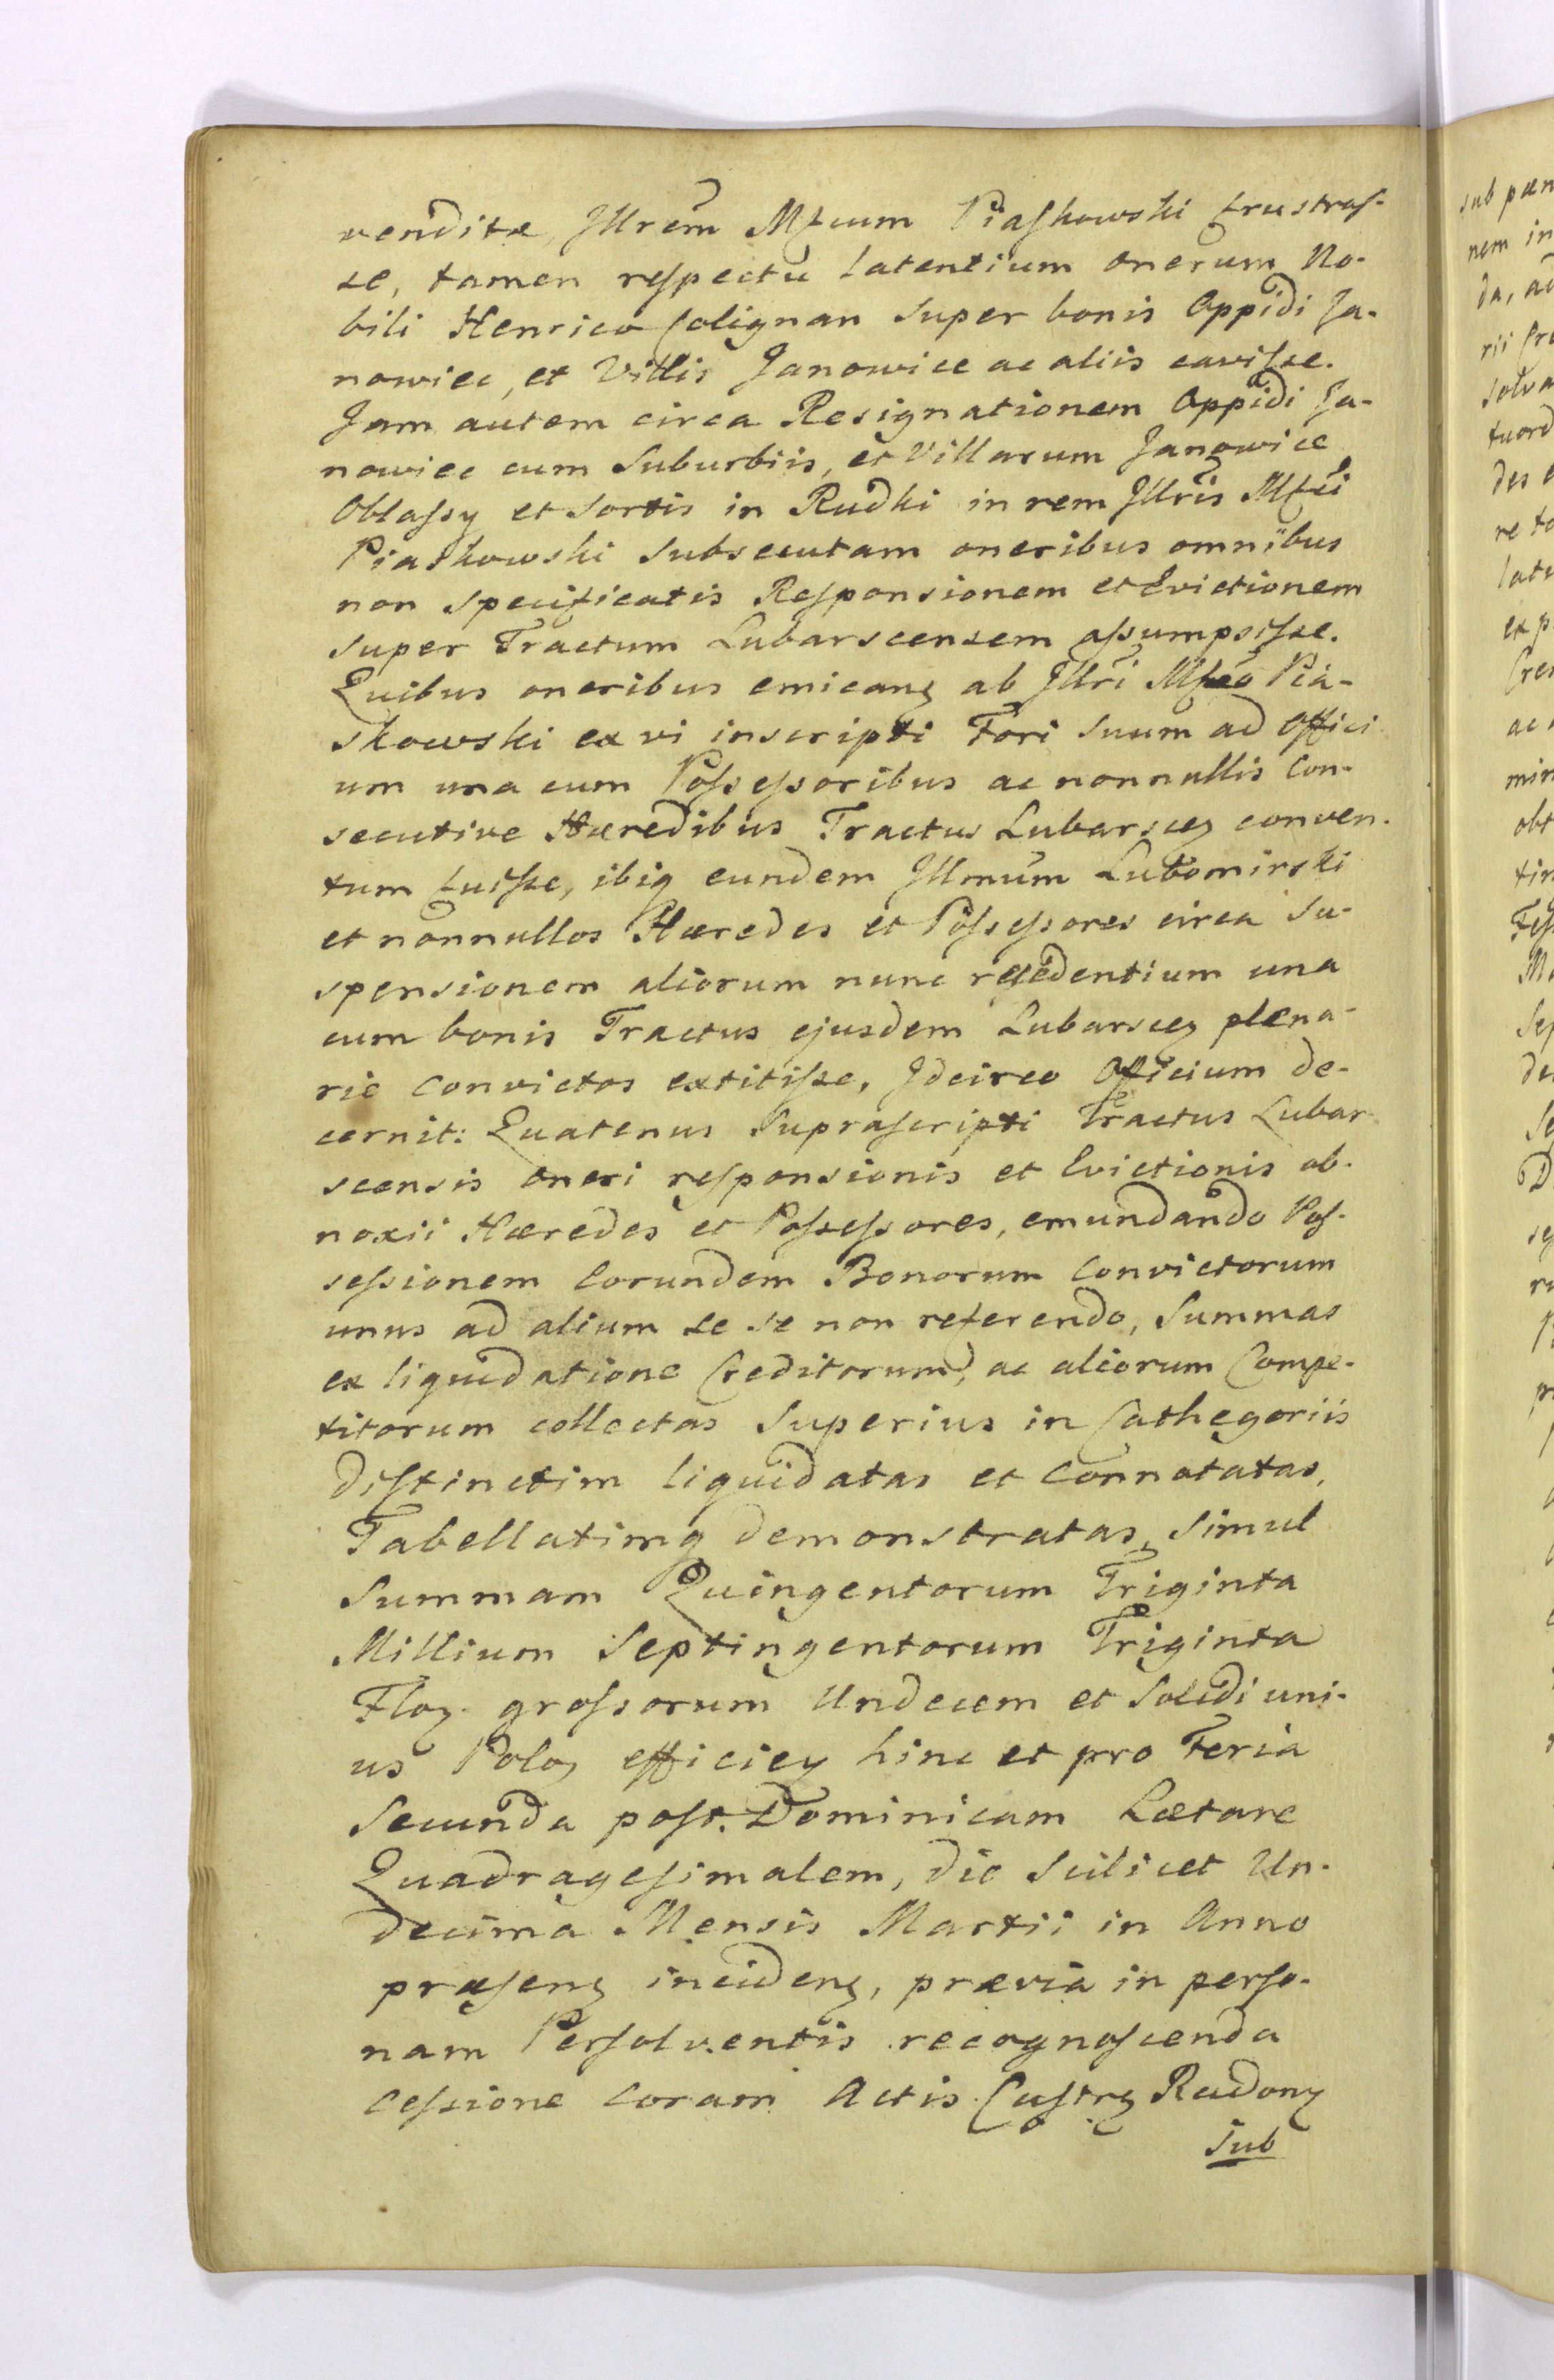 venditæ, Jllrem Mfcum Piaskowski frustras-
se, tamen respectu latentium onerum No-
bili Henrico Colignan super bonis Oppidi Ja-
nowiec, et Villis Janowice ac aliis cavisse.
Jam autem circa Resignationem Oppidi Ja-
nowiec cum Suburbiis, et Villarum Janowice
Oblassy et Sortis in Rudki in rem Jllris Mfci
Piaskowski Subsecutam oneribus omnibus
non specificatis Responsionem et Evictionem
super Tractum Lubarscensem assumpsisse.
Quibus oneribus emicanz ab Jllri Mfco Pia-
skowski ex vi inscripti Fori Suum ad Offici
um una cum Possessoribus ac nonnullis Con-
secutive Hæredibus Tractus Lubarscez conven-
tum fuisse, ibiq eundem Jllmum Lubomirski
et nonnullos Hæredes et Possessores circa Su-
spensionem aliorum nunc recedentium una
cum bonis Tractus ejusdem Lubarscez plena-
rie convictos extitisse, Jdcirco Officium de-
cernit: Quatenus Suprascripti Tractus Lubar
scensis oneri responsionis et Evictionis ob-
noxii Hæredes et Possessores, emundando Pos-
sessionem Eorundem Bonorum Convictorum
unus ad alium se se non referendo, Summas
ex liquidatione Creditorum, ac aliorum Compe-
titorum collectas Superius in Cathegoriis
distinctim liquidatas et Connotatas,
Tabellatimq demonstratas, Simul
Summam Quingentorum Triginta
Millium Septingentorum Triginta
Floz. grossorum Undecem et Solidi uni-
us Poloz efficiez hinc et pro Feria
Secunda post Dominicam Lætare
Quadragesimalem, die Scilicet Un-
decima Mensis Martii in Anno
præsenz incidenz, prævia in perso-
nam Persolventis recognoscenda
Cessione Coram Actis Castrz Radonz
Sub